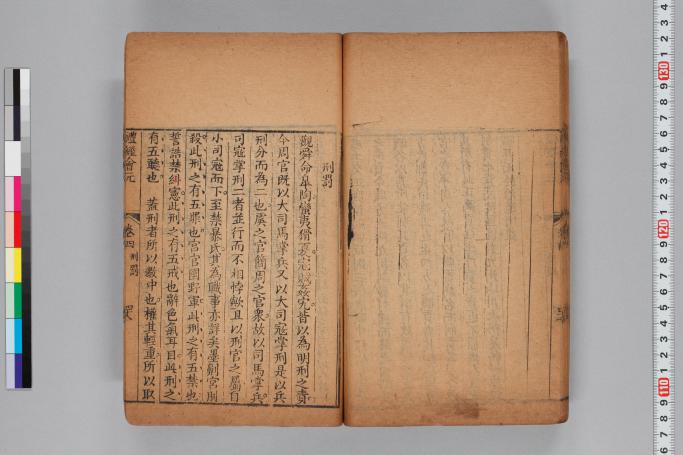 刑罰
觀舜命皐陶蠻夷猾夏寇賊姦宄皆以為明刑之責
今周官既以大司馬掌兵又以大司寇掌刑是以兵
刑分而為二也虞之官簡周之官衆故以司馬掌兵
司寇掌刑二者並行而不相悖歟且以刑官之屬自
小司寇而下至禁暴氏其為職事亦詳矣墨劓宮刖
殺此刑之有五罪也宮官國野軍此刑之有五禁也
誓誥禁糾憲此刑之有五戒也辭色氣耳目此刑之
有五聽也 蓋刑者所以敺中也權其輕重所以取
禮經會元
卷四 刑罰